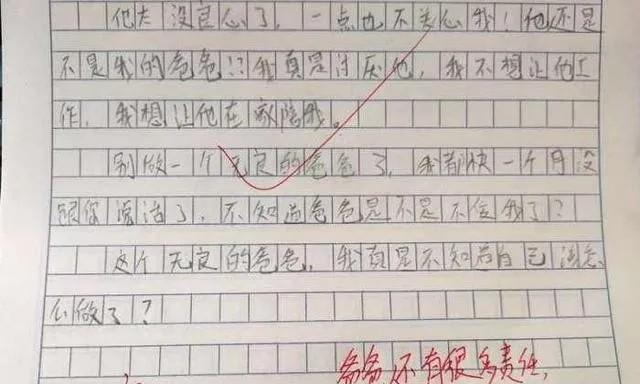 他太没良心了，一点也不关心我！他还是
不是我的爸爸！？我真是讨厌他，我不想让他工
作，我想让他在家陪我。
别做一个无良的爸爸了，我都快一个月没
跟你说话了，不知道爸爸是不是不信我了？
这个无良的爸爸，我真是不知道自己该怎
么做了？
爸爸还有很多责任，